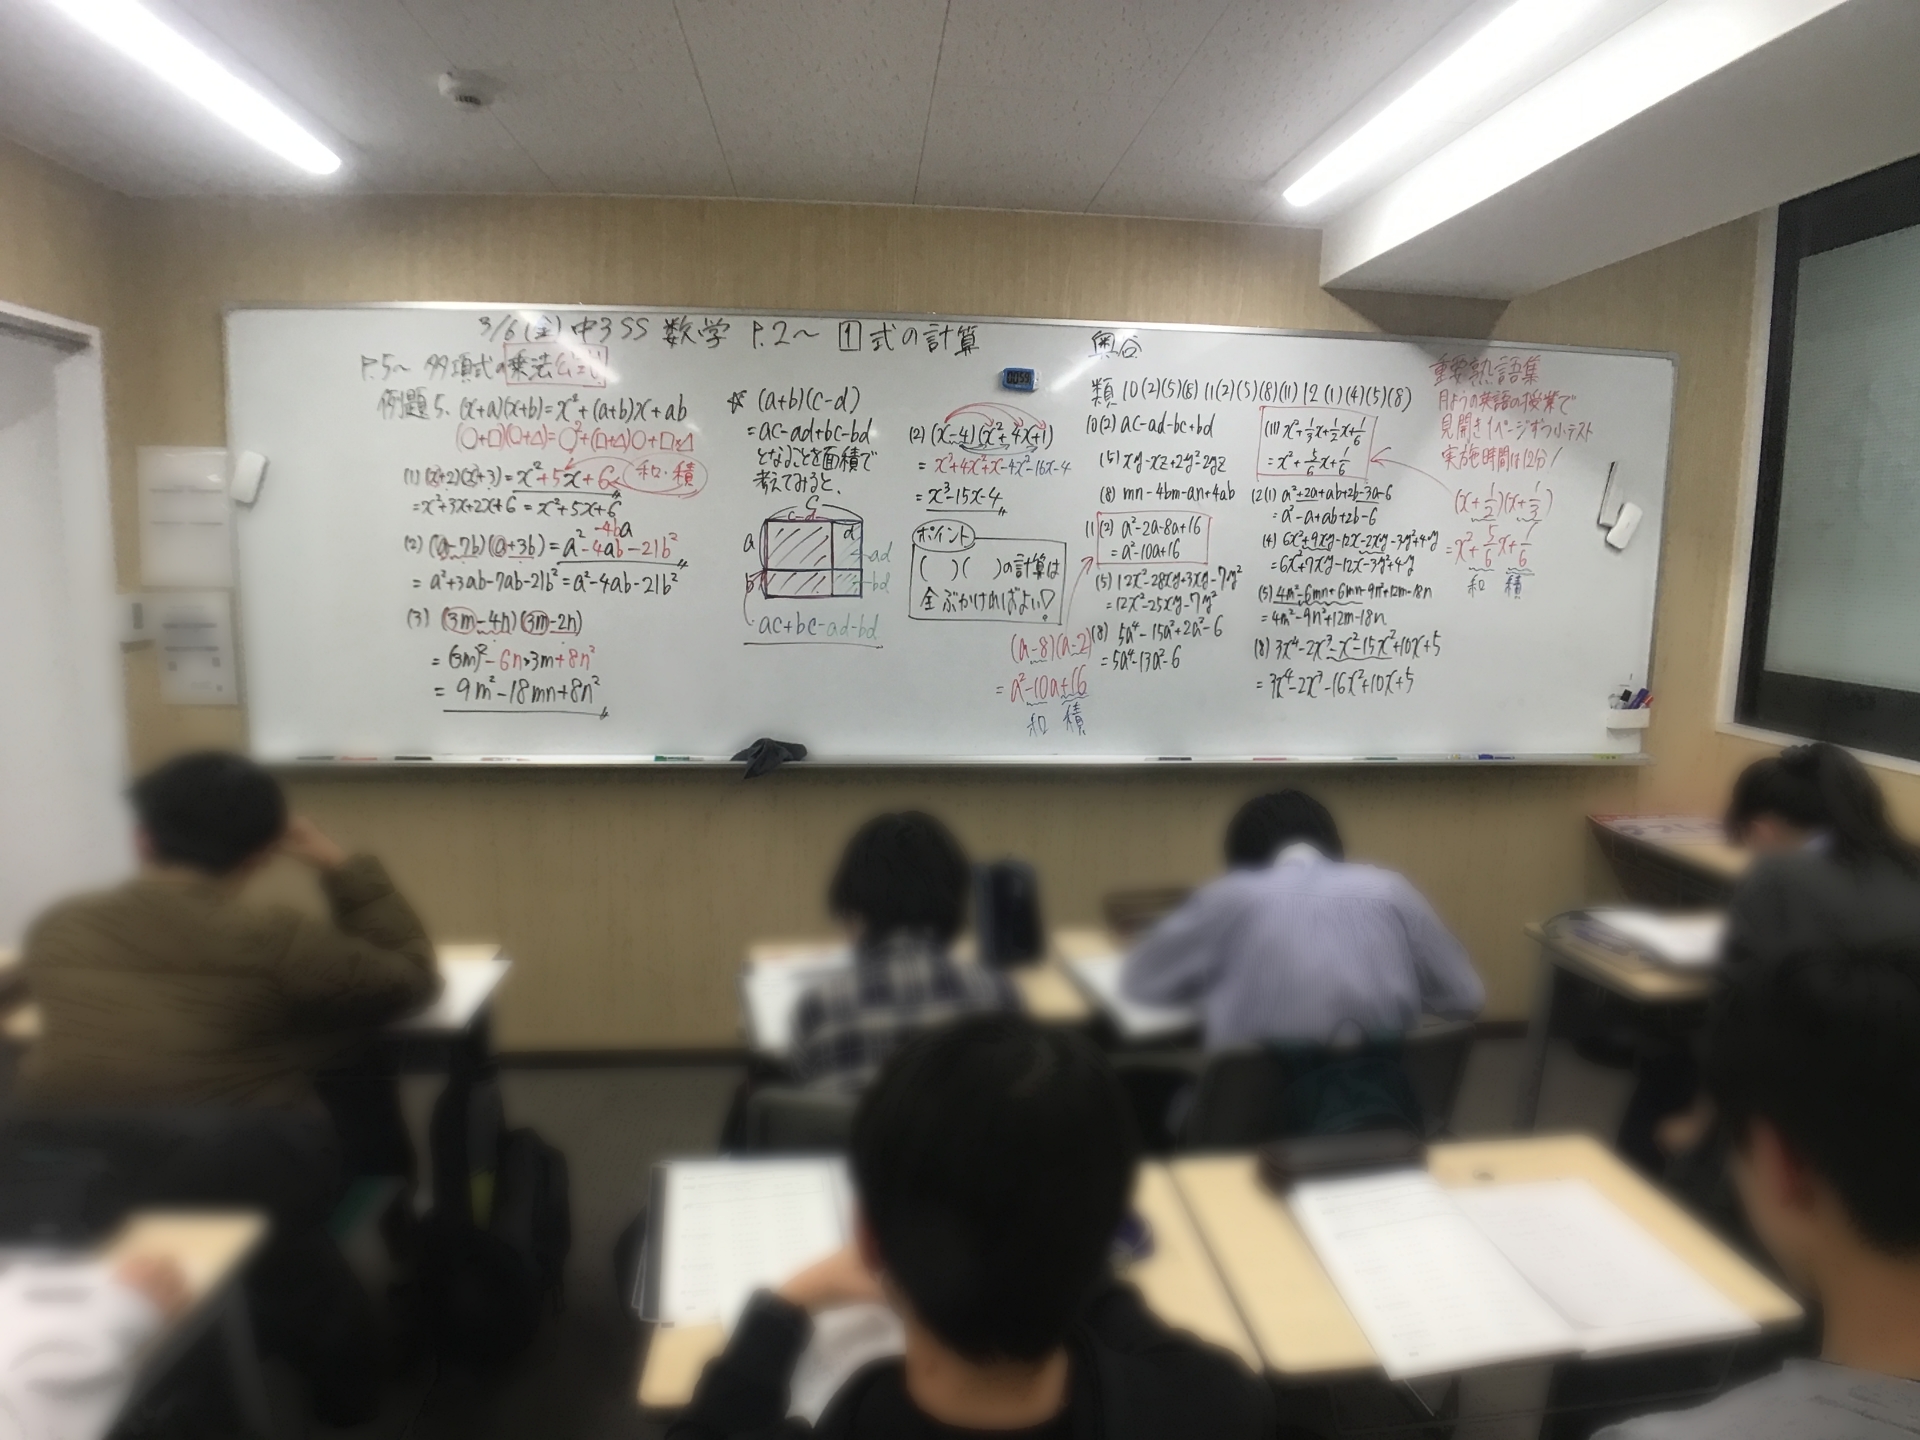 3/6(金) 中3SS 数学 P.2〜 1 式の計算
P.5〜 多項式の乗法公式
例題5. (x+a)(x+b)=x²+(a+b)x+ab
(○+□)(○+△)=○²+(□+△)○+□×△
(1) (x+2)(x+3)=x²+5x+6 和・積
=x²+3x+2x+6=x²+5x+6
-4ba
(2) (a-7b)(a+3b)=a²-4ab-21b²
=a²+3ab-7ab-21b²=a²-4ab-21b²
(3) (3m-4n)(3m-2n)
=(3m)²-6n×3m+8n²
=9m²-18mn+8n²
☆ (a+b)(c-d)
=ac-ad+bc-bd
となることを面積で
考えてみると、
c
c-d
d
a
b
ad
bd
ac+bc-ad-bd
(2) (x-4)(x²+4x+1)
=x³+4x²+x-4x²-16x-4
=x³-15x-4
ポイント
( )( )の計算は
全ぶかければよい!
(a-8)(a-2)
=a²-10a+16
和 積
類 10(2)(5)(8) 11(2)(5)(8)(11) 12(1)(4)(5)(8)
10(2) ac-ad-bc+bd
(5) xy-xz+2y²-2yz
(8) mn-4bm-an+4ab
11(2) a²-2a-8a+16
=a²-10a+16
(5) 12x²-28xy+3xy-7y²
=12x²-25xy-7y²
(8) 5a⁴-15a²+2a²-6
=5a⁴-13a²-6
(11) x²+1/3x+1/2x+1/6
=x²+5/6x+1/6
12(1) a²+2a+ab+2b-3a-6
=a²-a+ab+2b-6
(4) 6x²+9xy-12x-2xy-3y²+4y
=6x²+7xy-12x-3y²+4y
(5) 4m²-6mn+6mn-9n²+12m-18n
=4m²-9n²+12m-18n
(8) 3x⁴-2x³-x²-15x²+10x+5
=3x⁴-2x³-16x²+10x+5
重要熟語集
月ようの英語の授業で
見開き1ページずつ小テスト
実施時間は12分!
(x+1/2)(x+1/3)
=x²+5/6x+1/6
和 積